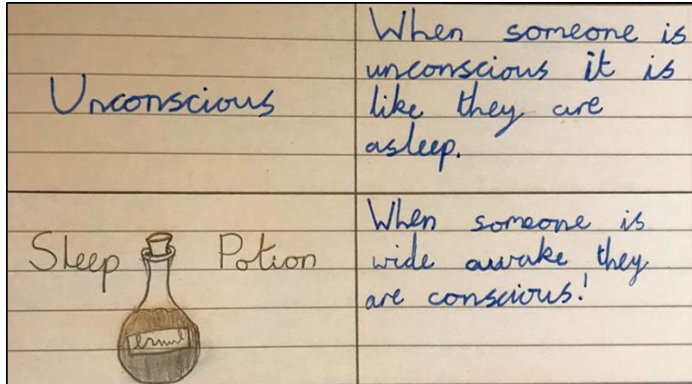 Unconscious
When someone is
unconscious it is
like they are
asleep.
Sleep Potion
When someone is
wide awake they
are conscious!